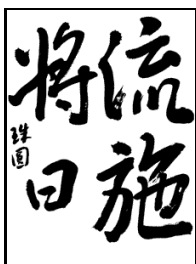 流施
將日
珠圓